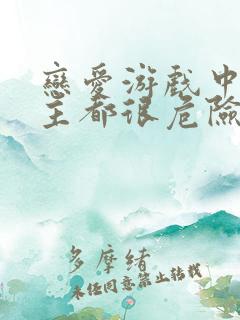 戀愛游戲中
主都很危險
多摩緒
未经同意禁止转载